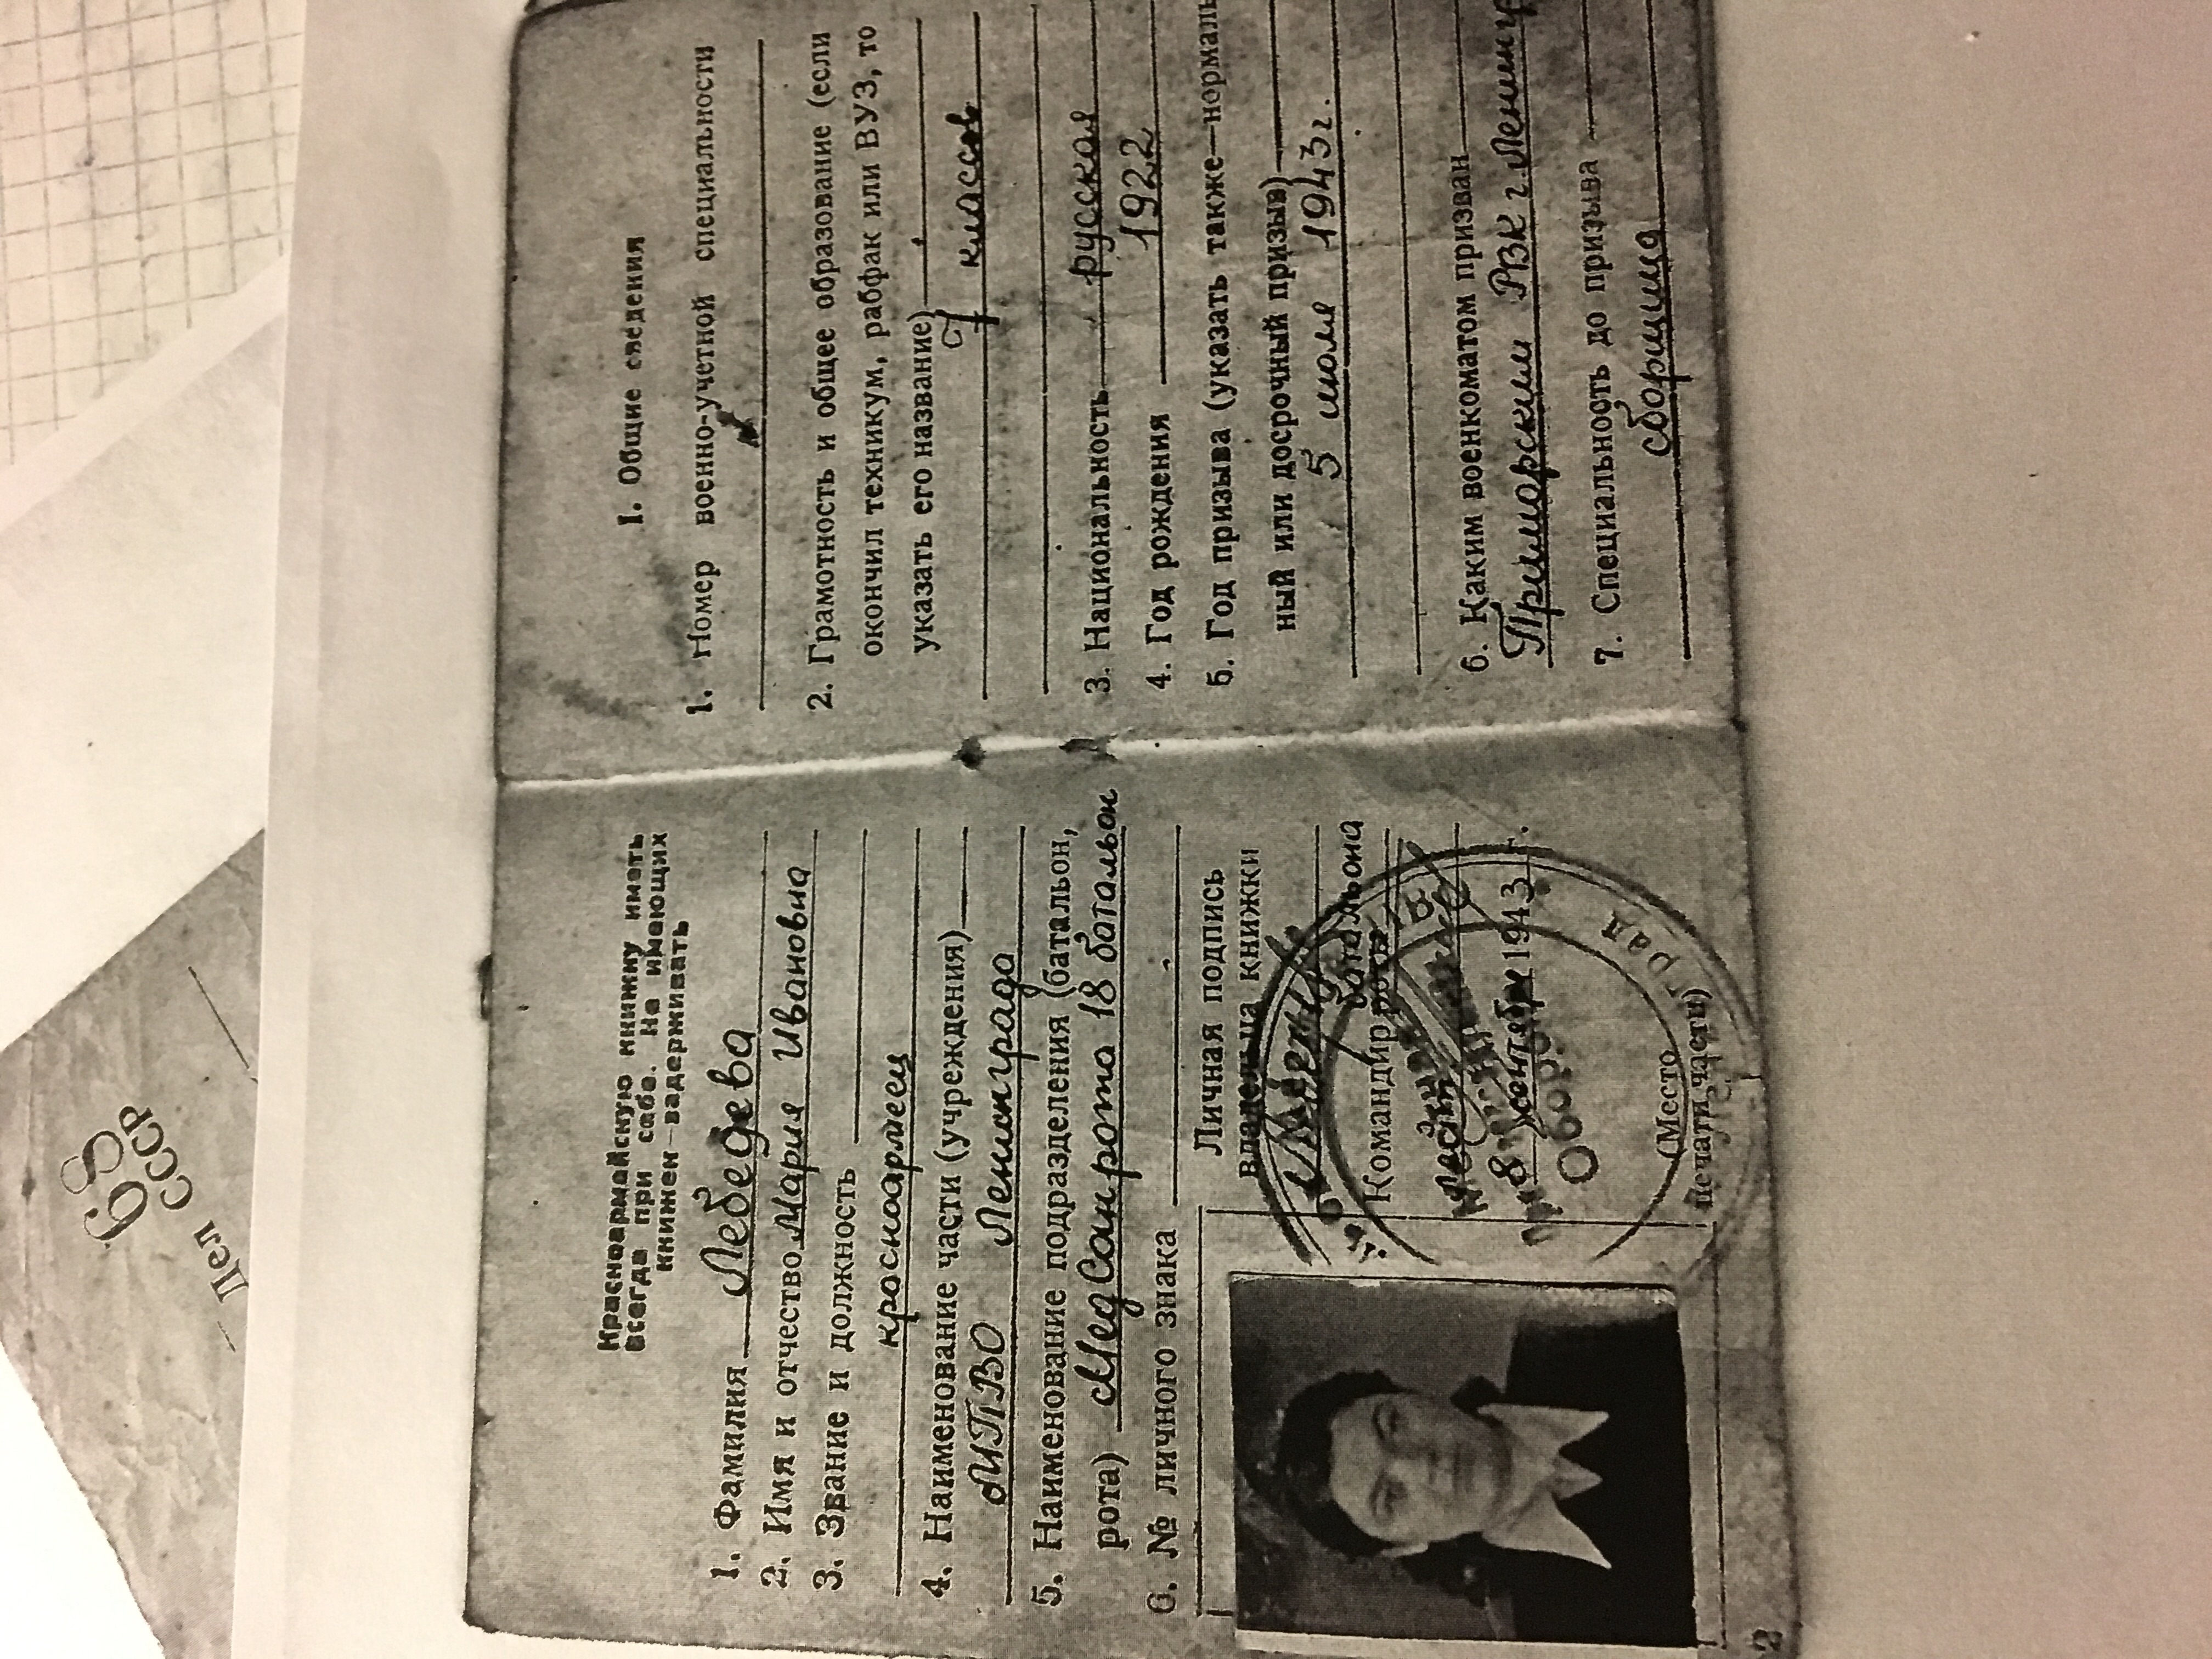 68
Дел СССР
Красноармейскую книжку иметь
всегда при себе. Не имеющих
книжек—задерживать
1. Фамилия Лебедева
2. Имя и отчество Мария Ивановна
3. Звание и должность
красноармеец
4. Наименование части (учреждения)
МПВО Ленинграда
5. Наименование подразделения (батальон,
рота) МедСанрота 18 батальон
6. № личного знака
Личная подпись
владельца книжки
батальона
Командир роты
8 сентября 1943 г.
Местная
Оборона
(Место
печати части)
Ленинград
2
I. Общие сведения
1. Номер военно-учетной специальности
2. Грамотность и общее образование (если
окончил техникум, рабфак или ВУЗ, то
указать его название)
7 классов
3. Национальность русская
4. Год рождения 1922
5. Год призыва (указать также—нормаль
ный или досрочный призыв)
5 июля 1943г.
6. Каким военкоматом призван
Приморским РВК г. Ленингр
7. Специальность до призыва
сборщица